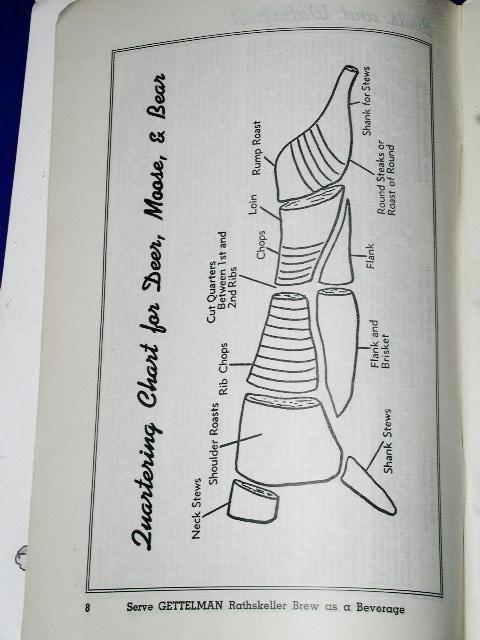 Quartering Chart for Deer, Moose, & Bear
Neck Stews
Shoulder Roasts
Rib Chops
Cut Quarters
Between 1st and
2nd Ribs
Chops
Loin
Rump Roast
Shank Stews
Flank and
Brisket
Flank
Round Steaks or
Roast of Round
Shank for Stews
8 Serve GETTELMAN Rathskeller Brew as a Beverage